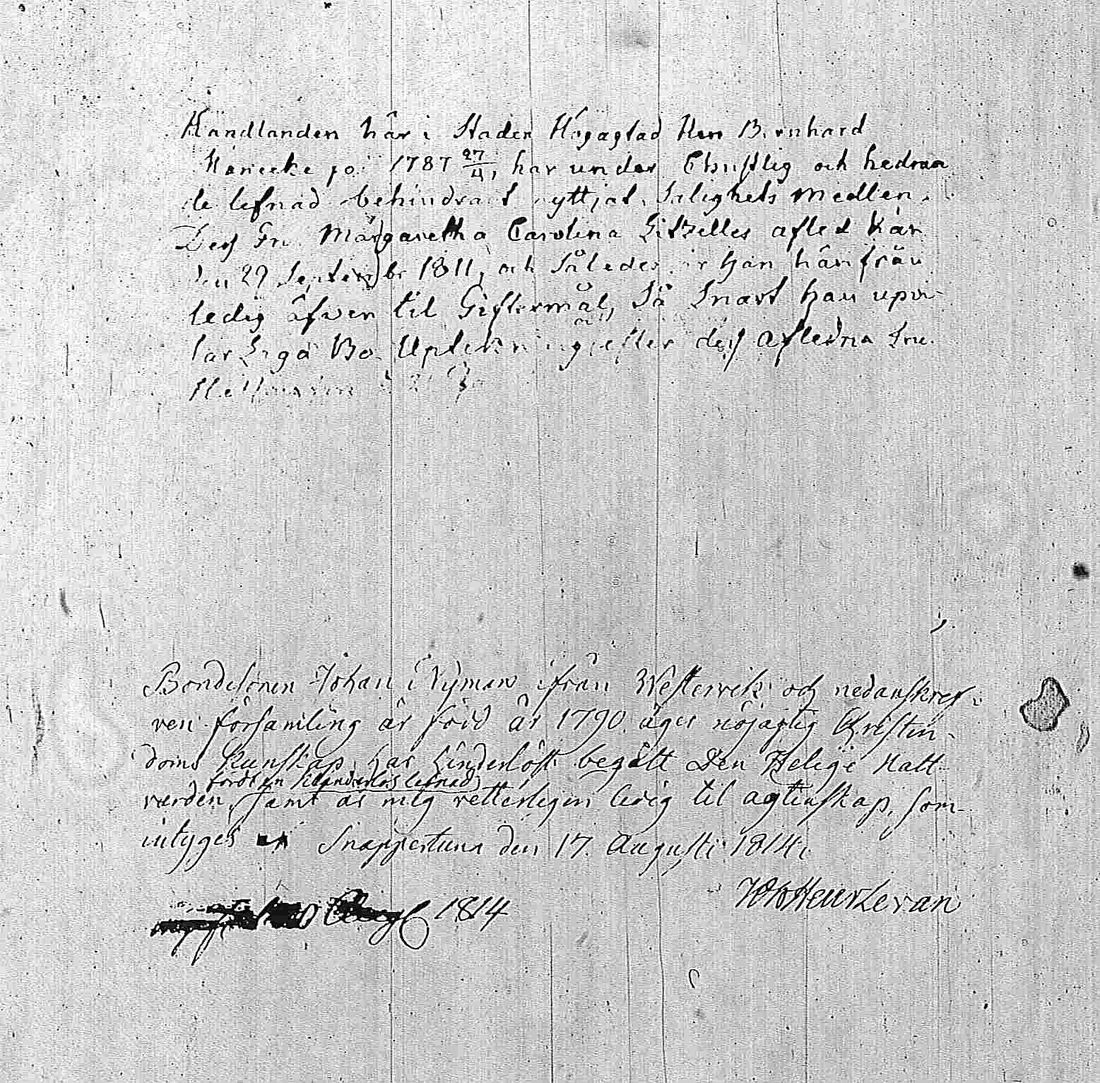 Handlanden här i Staden Högagtad Herr Bernhard
1787 27/4, har under Christlig och hedran
de lefnad obehindradt nyttjat Salighets Medlen.
Dess Fru Margaretha Carolina afled här
den 29 September 1811, och Således är Han härifrån
ledig äfwen til Giftermål, Så Snart han upwi-
sar Laga Bo Upteckning efter dess Afledna Fru.
Bondesonen Johan Nyman ifrån Westervik och nedanskref-
ven församling är född år 1790. äger nöjagtig Christin-
doms kunskap, har hinderlöst begått Den Helige Natt-
fördt en oklanderlig lefnad
varden, samt är mig vetterligen ledig til ägtenskap, som
intygas Snappertuna den 17. Augusti 1814.
Heurlevan
Aug 1814